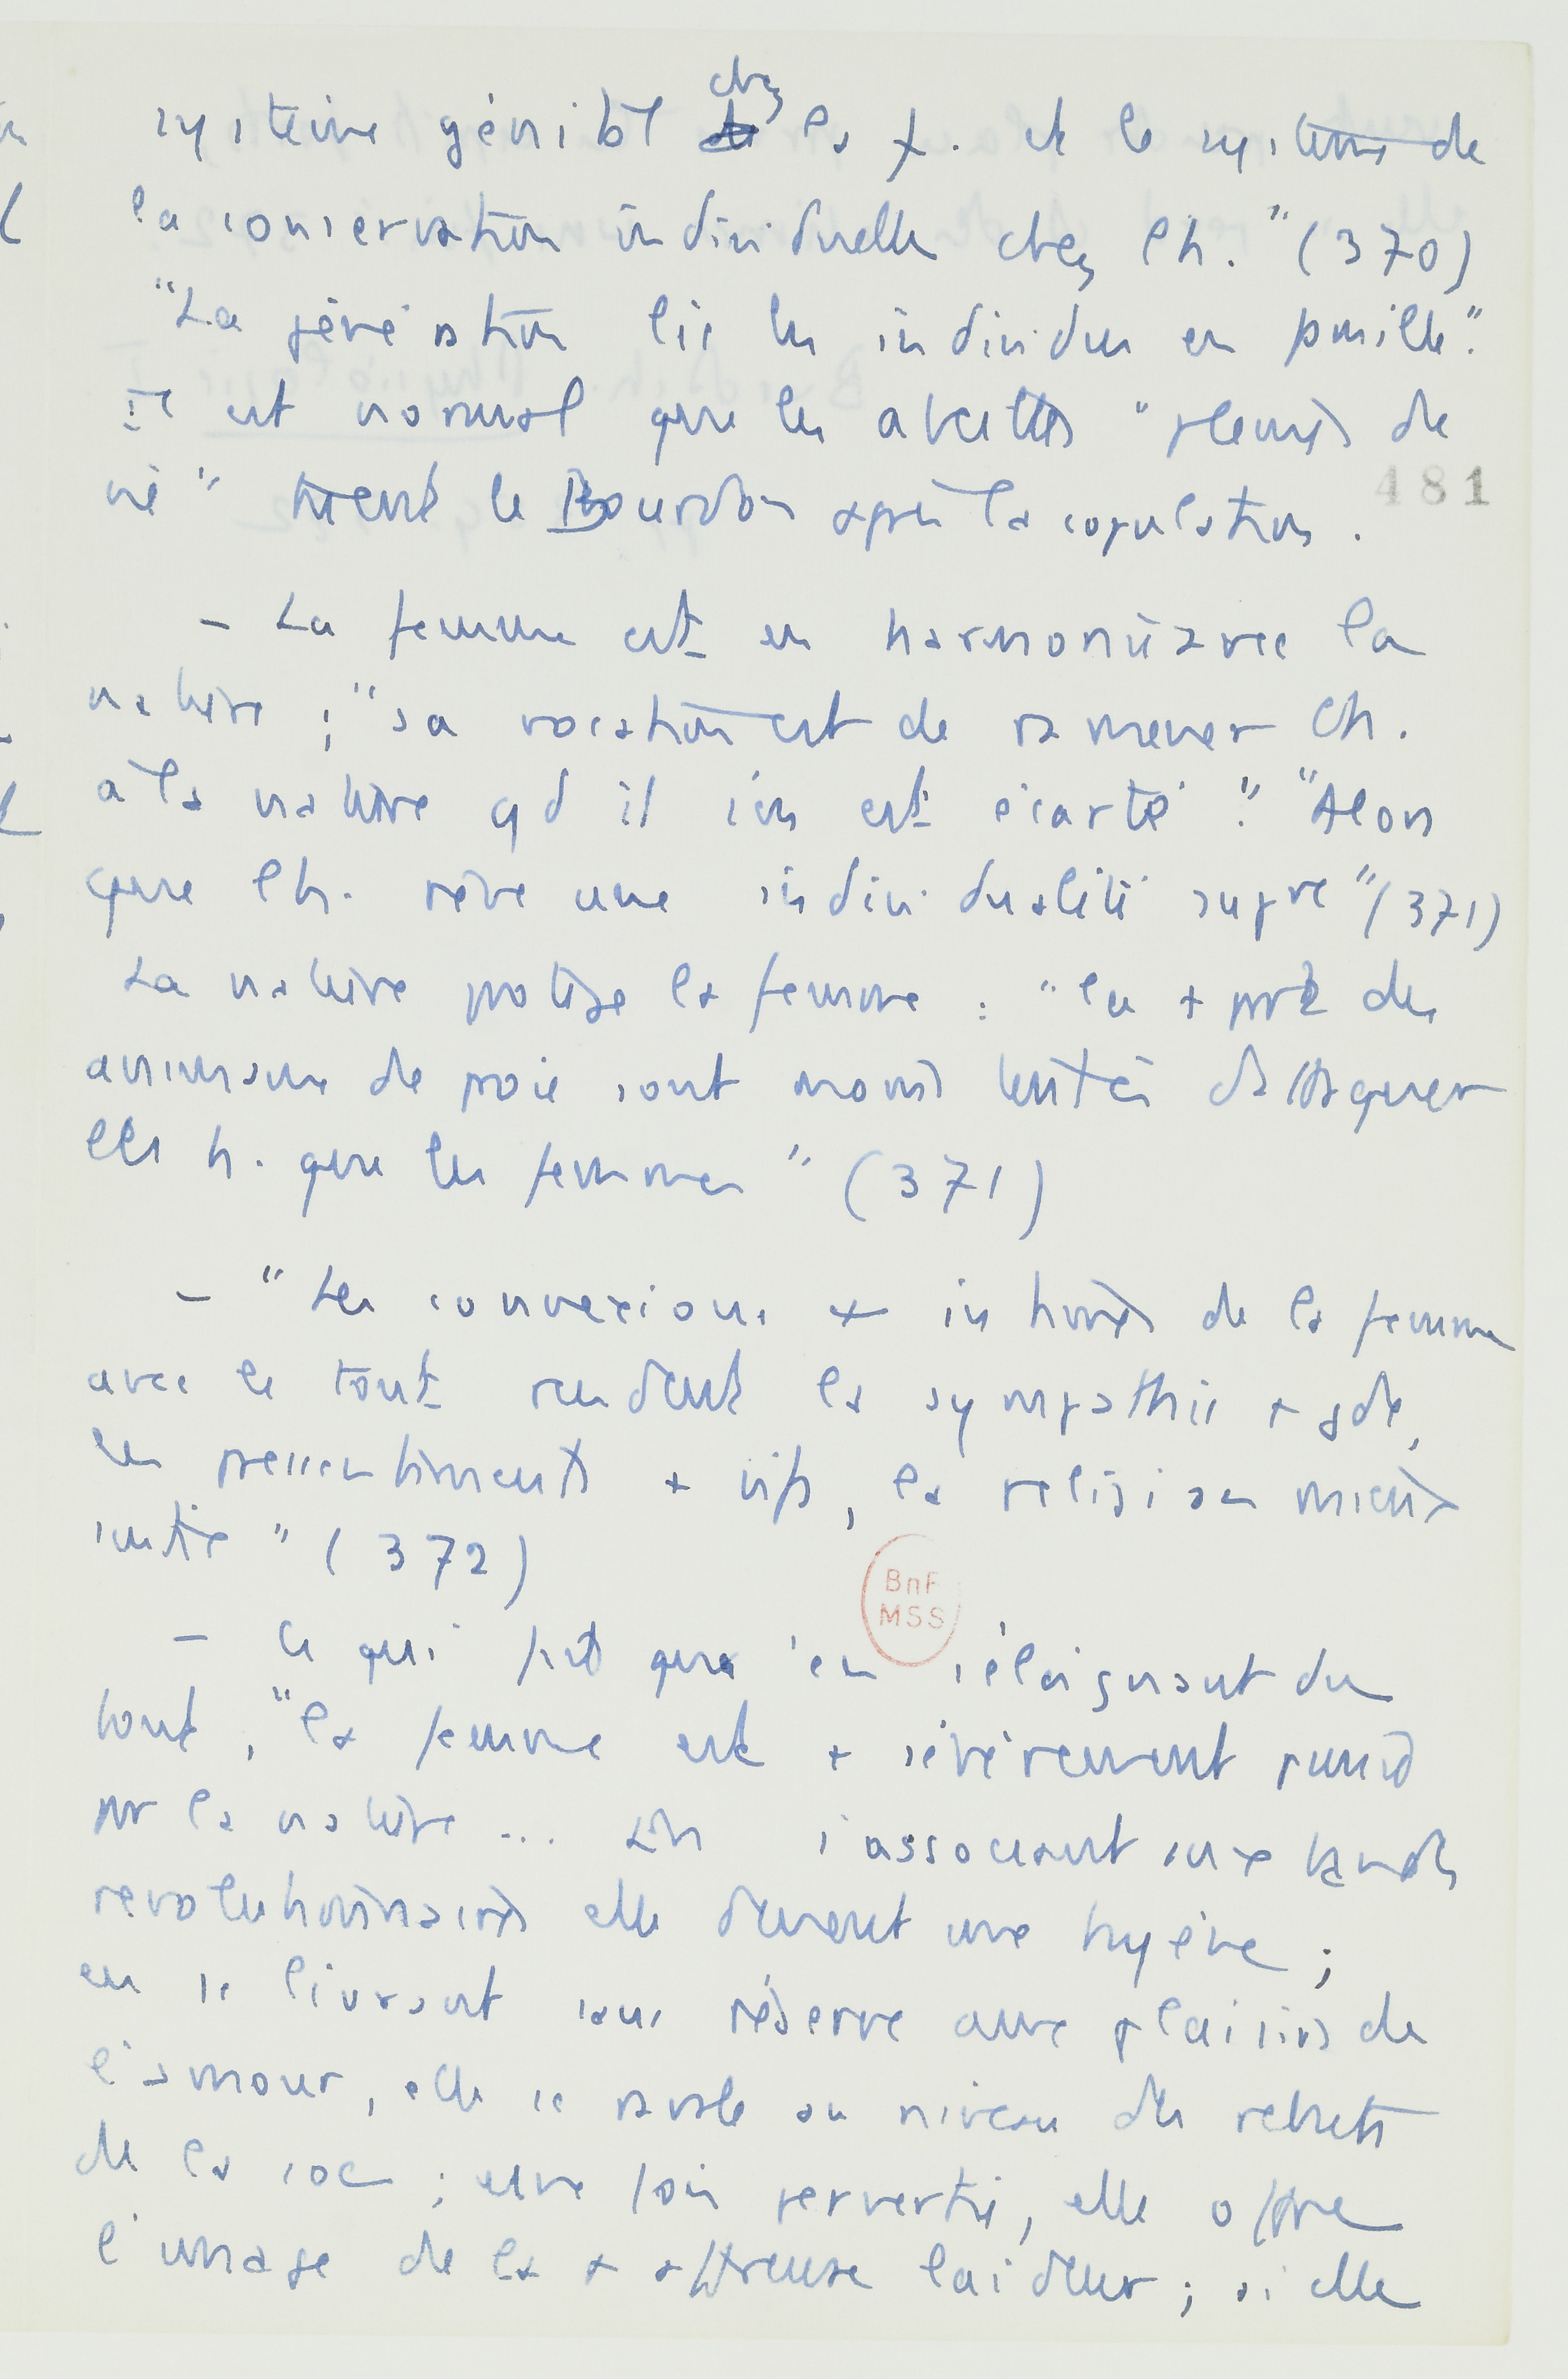 système génital chez la f. et le système de
la conservation individuelle chez l'h." (370)
"La génération lie les individus en famille".
Il est normal que les abeilles "pleines de
vie" tuent le Bourdon après la copulation.
481
– La femme est en harmonie avec la
nature ; "sa vocation est de ramener l'h.
à la nature qd il s'en est écarté". "Alors
que l'h. rêve une individualité supre" (371)
La nature protège la femme : "la + part des
animaux de proie sont moins tentés d'attaquer
les h. que les femmes" (371)
– "Les connexions + intimes de la femme
avec le tout rendent la sympathie + gde,
les pressentiments + vifs, la religion mieux
sentie" (372)
BnF
MSS
– Ce qui fait que s'en s'éloignant du
tout, "la femme est + sévèrement punie
par la nature ... En s'associant aux bandes
revolutionnaires elle devient une hyène ;
en se livrant sans réserve aux plaisirs de
l'amour, elle se ravale au niveau des rebuts
de la soc ; une fois pervertie, elle offre
l'image de la + affreuse laideur ; si elle